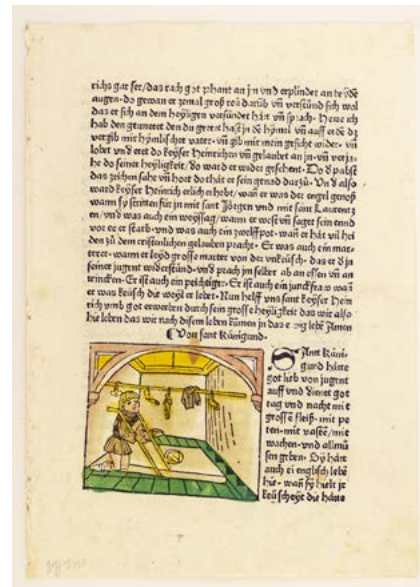 richs gar ser/das rach got zehant an jn vnd erplindet an beyde
augen· do gewan er zemal groß reü darüb vñ verstünd sich wol
das er sich an dem heyligen versündet hät vñ sprach· Herre ich
hab den geuneret den du geeret hast in dē hymel vñ auff erde dz
vergib mir hymlischer vater· vñ gib mir mein gesicht wider· vñ
lobet vnd eret do keyser Heinrichen vñ gelaubet an jn· vñ verja-
he do seiner heyligkeit· do ward er wider gesehent· Do d pabst
das zeichen sahe vñ hort do thät er sein genad darzů· Vnd also
ward keyser Heinrich erlich erhebt/wañ er was der engel genoß
wann sy striten für in mit sant Jörgen vnd mit sant Laurentz
en/vnd was auch ein weyssag/wann er west vñ saget sein end
vor ee er starb· vnd was auch ein zwelffpot· wañ er hät vil hei
den zů dem cristenlichen gelauben pracht· Er was auch ein mar-
terer· wann er leyd grosse marter von der vnkeusch· das er d in
seiner jugent widerstünd· vnd prach jm selber ab an essen vñ an
trincken· Er ist auch ein peichtiger· Er ist auch ein junckfraw wañ
er was keüsch die weyl er lebet· Nun helff vns sant keyser Hein
rich vmb got erwerben durch sein grosse heyligkeit das wir also
hie leben das wir nach disem leben kümen in das ewig lebē Amen
¶ Von sant Künigund·
SAnt Küni-
gund hätte
got lieb von jugent
auff vnd dienet got
tag vnd nacht mit
grossē fleiß· mit pe
ten· mit vasten/mit
wachen· vnd allmů
sen geben· Sy häte
auch ei englisch lebē
hie· wañ sy hielt jr
keüscheyt die hätte